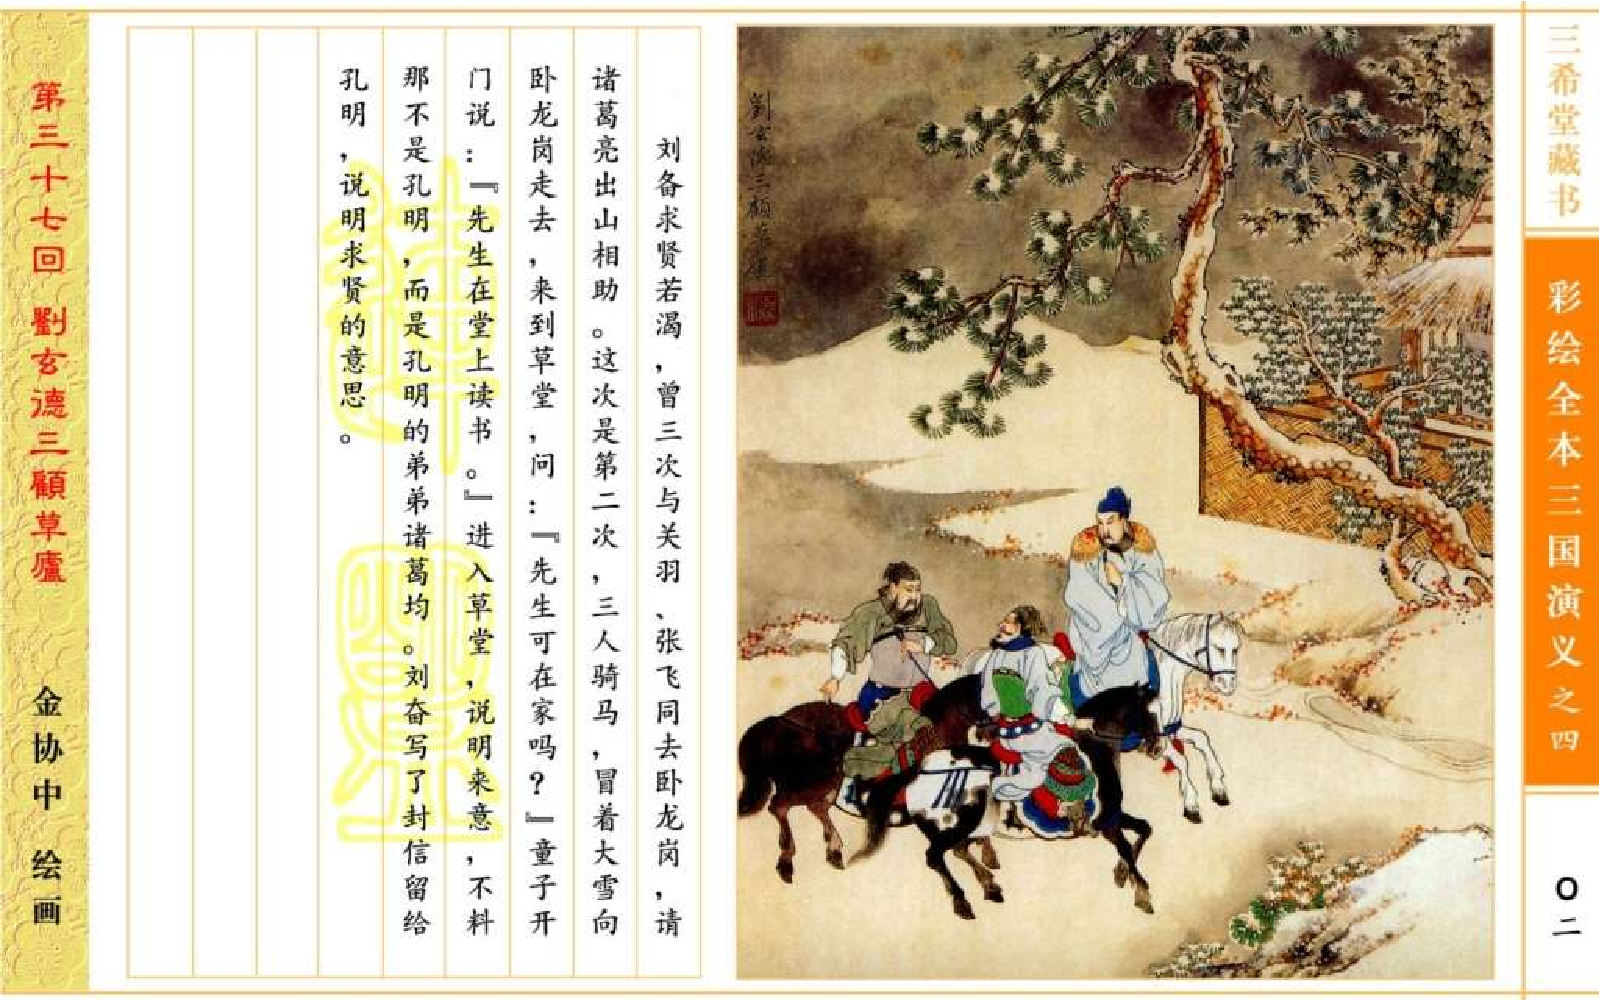 三希堂藏书
彩绘全本三国演义之四
〇二
劉玄德三顧草廬
刘备求贤若渴，曾三次与关羽、张飞同去卧龙岗，请
诸葛亮出山相助。这次是第二次，三人骑马，冒着大雪向
卧龙岗走去，来到草堂，问：『先生可在家吗？』童子开
门说：『先生在堂上读书。』进入草堂，说明来意，不料
那不是孔明，而是孔明的弟弟诸葛均。刘奋写了封信留给
孔明，说明求贤的意思。
第三十七回 劉玄德三顧草廬 金协中 绘画